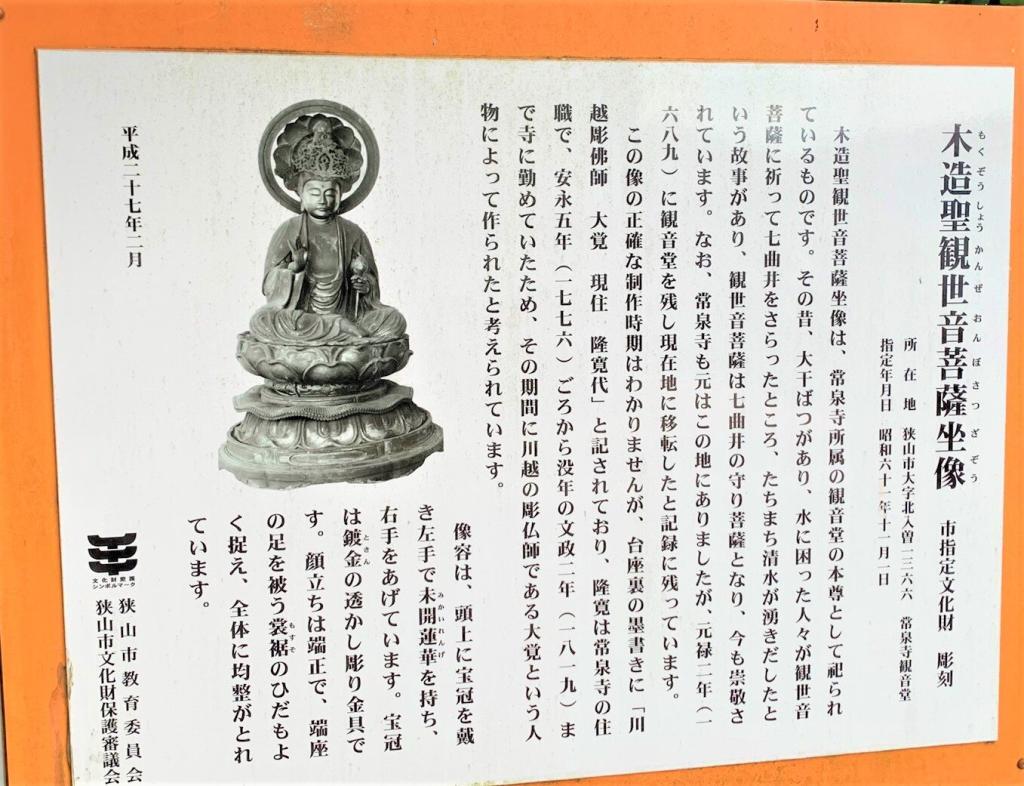 木造聖観世音菩薩坐像　市指定文化財　彫刻
もくぞうしょうかんぜおんぼさつざぞう
所在地　狭山市大字北入曽一三六六　常泉寺観音堂
指定年月日　昭和六十一年十一月一日
木造聖観世音菩薩坐像は、常泉寺所属の観音堂の本尊として祀られ
ているものです。その昔、大干ばつがあり、水に困った人々が観世音
菩薩に祈って七曲井をさらったところ、たちまち清水が湧きだしたと
いう故事があり、観世音菩薩は七曲井の守り菩薩となり、今も崇敬さ
れています。なお、常泉寺も元はこの地にありましたが、元禄二年（一
六八九）に観音堂を残し現在地に移転したと記録に残っています。
この像の正確な制作時期はわかりませんが、台座裏の墨書きに「川
越彫佛師　大覚　現住　隆寛代」と記されており、隆寛は常泉寺の住
職で、安永五年（一七七六）ごろから没年の文政二年（一八一九）ま
で寺に勤めていたため、その期間に川越の彫仏師である大覚という人
物によって作られたと考えられています。
像容は、頭上に宝冠を戴
き左手で未開蓮華を持ち、
みかいれんげ
右手をあげています。宝冠
は鍍金の透かし彫り金具で
ときん
す。顔立ちは端正で、端座
の足を被う裳裾のひだもよ
もすそ
く捉え、全体に均整がとれ
ています。
平成二十七年二月
文化財愛護
シンボルマーク
狭山市教育委員会
狭山市文化財保護審議会